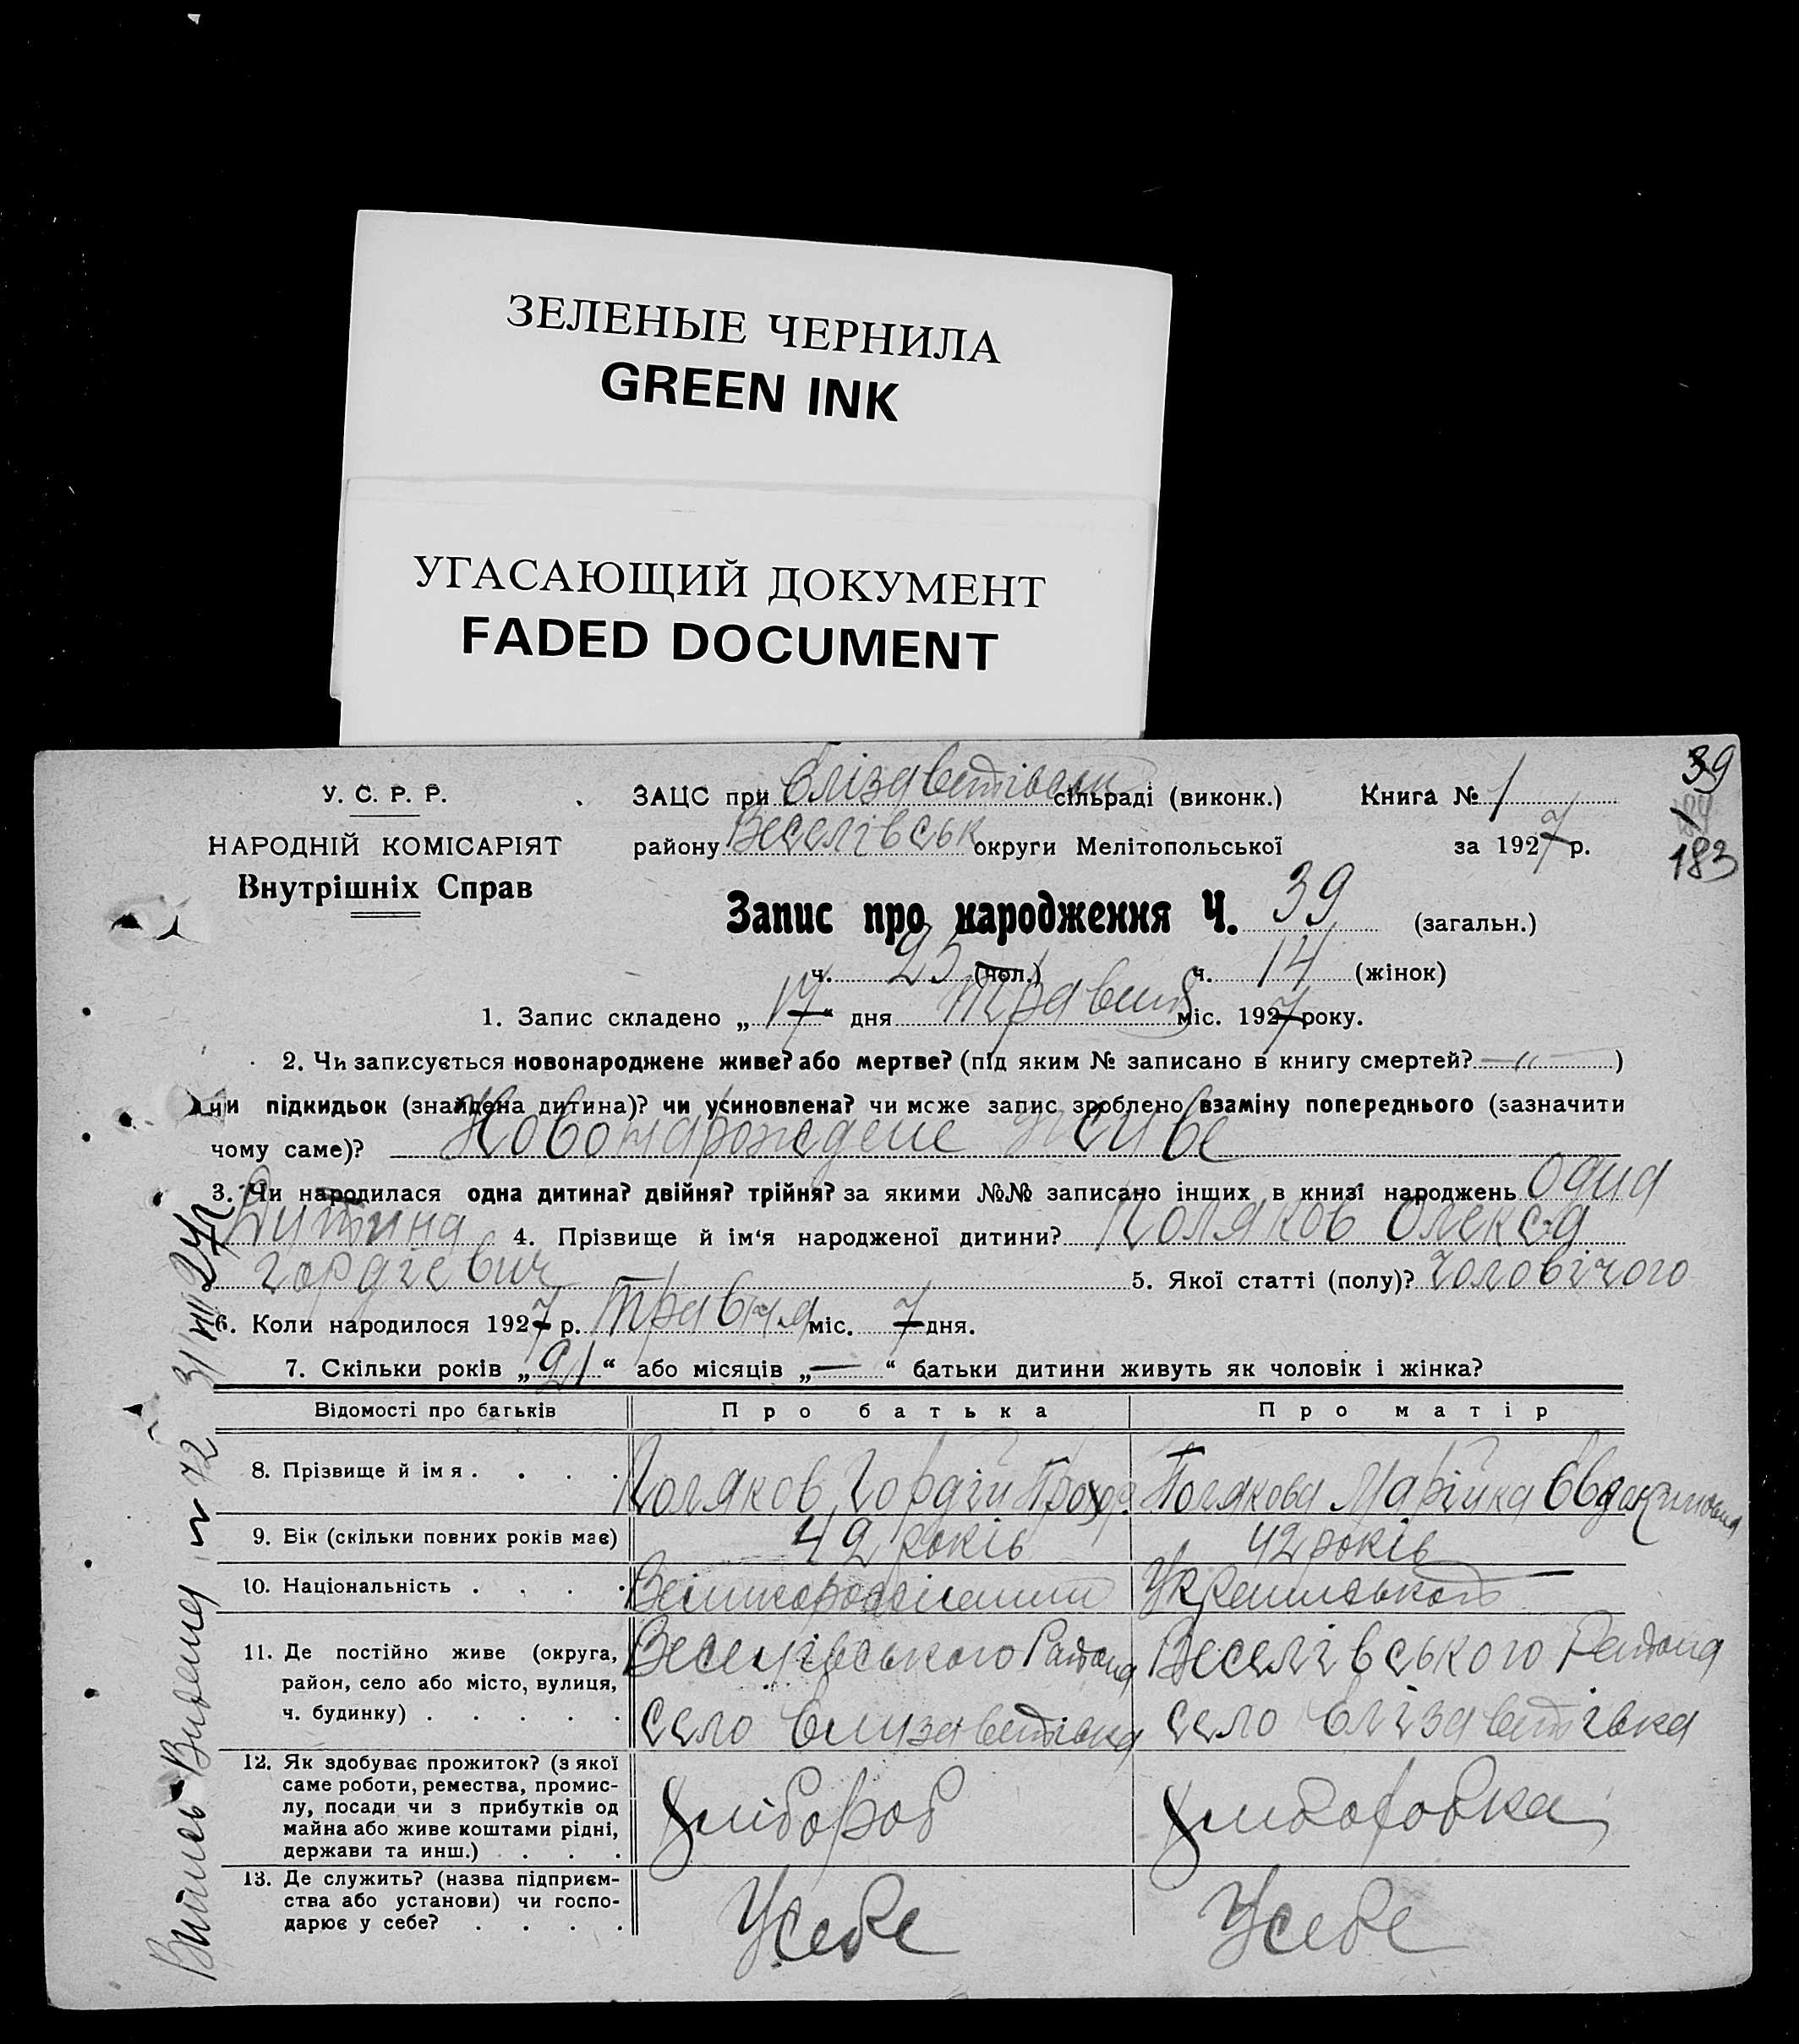 ЗЕЛЕНЫЕ ЧЕРНИЛА
GREEN INK
УГАСАЮЩИЙ ДОКУМЕНТ
FADED DOCUMENT
39
183
У. С. Р. Р.
НАРОДНІЙ КОМІСАРІЯТ
Внутрішніх Справ
ЗАЦС при Єлізаветівськ сільраді (виконк.) Книга № 1
району Веселівськ округи Мелітопольської за 1927 р.
Запис про народження Ч. 39 (загальн.)
ч. 25 (чол.) ч. 14 (жінок)
1. Запис складено „17“ дня травня міс. 1927 року.
2. Чи записується новонароджене живе? або мертве? (під яким № записано в книгу смертей? —„— )
чи підкидьок (знайдена дитина)? чи усиновлена? чи може запис зроблено взаміну попереднього (зазначити
чому саме)? Новонарождене живе
3. Чи народилася одна дитина? двійня? трійня? за якими №№ записано інших в книзі народжень одна
дитина 4. Прізвище й ім‘я народженої дитини? Поляков Олекса
Гордієвич 5. Якої статті (полу)? Чоловічого
6. Коли народилося 1927 р. травня міс. 7 дня.
7. Скільки років „21“ або місяців „—“ батьки дитини живуть як чоловік і жінка?
Відомості про батьків Про батька Про матір
8. Прізвище й імя . . . . Поляков Гордій Прохр. Полякова Марійка Євдокимовна
9. Вік (скільки повних років має) 42 років 42 років
10. Національність . . . .
11. Де постійно живе (округа, район, село або місто, вулиця, ч. будинку) . . . . . Веселівського Району Веселівського Району
село Єлизаветівка село Єлізаветівка
12. Як здобуває прожиток? (з якої саме роботи, ремества, промислу, посади чи з прибутків од майна або живе коштами рідні, держави та инш.) . . . хлібороб хлиборобка
13. Де служить? (назва підприємства або установи) чи господарює у себе? . . . . Усебе Усебе